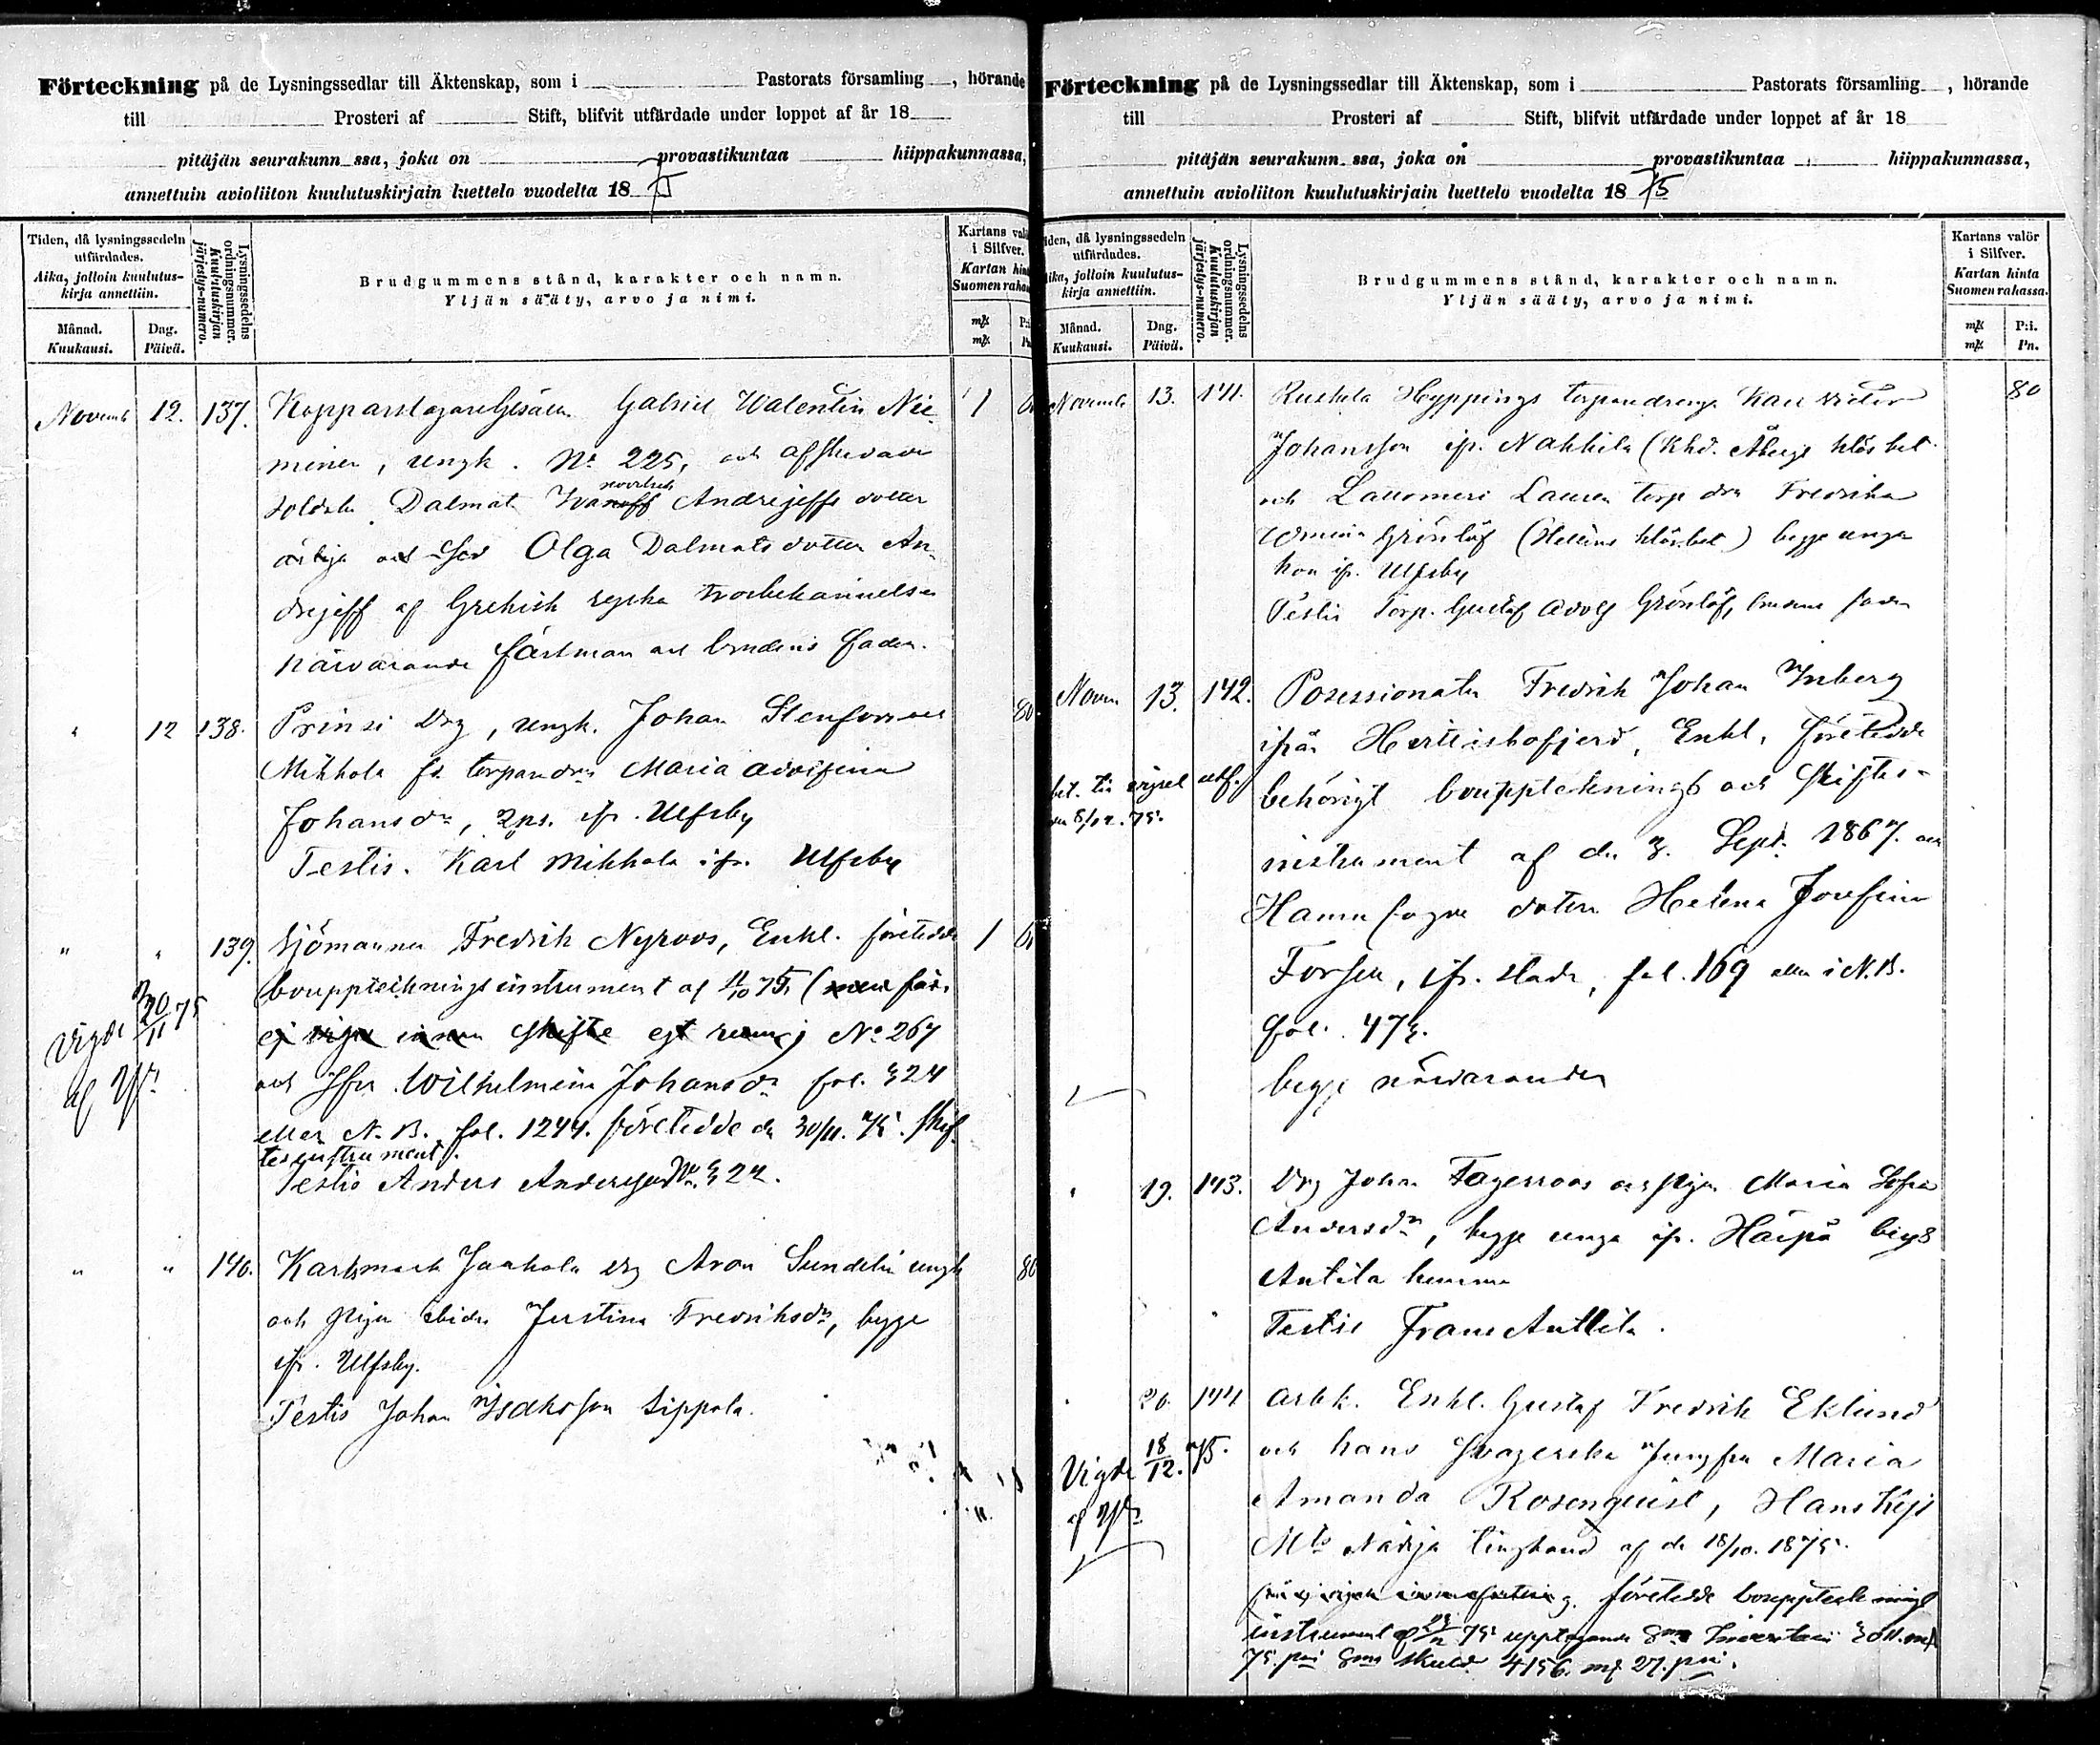 Förteckning på de Lysningssedlar till Äktenskap, som i Pastorats församling, hörande
till Prosteri af Stift, blifvit utfärdade under loppet af år 18
pitäjän seurakunn ssa, joka on provastikuntaa hiippakunnassa,
annettuin avioliiton kuulutuskirjain luettelo vuodelta 1875
Tiden, då lysningssedeln utfärdades.
Aika, jolloin kuulutuskirja annettiin.
Månad. Kuukausi.
Dag. Päivä.
Lysningssedelns ordningsnummer.
Kuulutuskirjan järjestys-numero.
Brudgummens stånd, karakter och namn.
Yljän sääty, arvo ja nimi.
Kartans valör i Silfver.
Kartan hinta Suomen rahassa.
Novemb 12. 137. Kopparslagare Gesällen Gabriel Walentin Nie- 1
minen, ungk. No 225, och afskedade
soldaten Dalmat Ivanoff Andrejeffs dotter
ärliga och Olga Dalmats dotter An-
drejeff af Grekisk ryska trosbekännelsen
närvarande fästman och brudens fader.
" 12 138. Prinsi Drg, ungk. Johan Stenforss och 80
Mikkola fd. torparedr Maria Adolfina
Johansdr, ifr. Ulfsby
Testis. Karl Mikkola ifr. Ulfsby
" " 139. Sjömannen Fredrik Nyroos, Enkl. företedde 1
bouppteckningsinstrument af 11/10 75 (men får
ej viga innan skifte egt rum) No 267
och Jfrn Wilhelmina Johansdr fol. 524
eller N.B. fol. 1244. företedde den 30/11. 75. skif-
tesinstrument.
Testis Anders Andersson No 522.
Vigde 30/11 75
af
" " 140. Karlsmark Jaakola drg Aron Sundelin ungk 80
och pigan ibidm Justina Fredriksdr, begge
ifr. Ulfsby.
Testis Johan Isaksson Sippola.
Förteckning på de Lysningssedlar till Äktenskap, som i Pastorats församling, hörande
till Prosteri af Stift, blifvit utfärdade under loppet af år 18
pitäjän seurakunn ssa, joka on provastikuntaa hiippakunnassa,
annettuin avioliiton kuulutuskirjain luettelo vuodelta 1875
Tiden, då lysningssedeln utfärdades.
Aika, jolloin kuulutuskirja annettiin.
Månad. Kuukausi.
Dag. Päivä.
Lysningssedelns ordningsnummer.
Kuulutuskirjan järjestys-numero.
Brudgummens stånd, karakter och namn.
Yljän sääty, arvo ja nimi.
Kartans valör i Silfver.
Kartan hinta Suomen rahassa.
P:i. Pn.
Novemb 13. 141. Ruskela Hyppings torparedreng Karl Victor 80
Johansson ifr. Nakkila (Khd. Åbergs bet
och Lattomeri Lauren torp dra Fredrika
Grönlöf (Hellens bet) begge unga
hon ifr. Ulfsby
Testis Torp. Gustaf Adolf Grönlöf, brudens fader
Novem 13. 142. Possessionaten Fredrik Johan Inberg
ifrån, Enkl, företedde
behörigt bouppteckings och skiftes-
instrument af den 3. Sept. 1867. och
Hamnfogde dottern Helena Josefina
Forsen, ifr. staden, fol. 169 eller i N.B.
fol. 475.
begge närvarande
bet. till vigsel utf.
den 8/12. 75.
" 19. 143. Drg Johan Fagerroos och pigan Maria Sofia
Andersdr, begge unga ifr. Haistila begge
Antila hemma
Testis Frans Anttila.
" 20. 144 Arbk. Enkl. Gustaf Fredrik Eklund
och hans Svägerska Jungfru Maria
Amanda Rosenqvist, Hans Kejs
Mts Nådiga tillstånd af den 18/10. 1875.
företedde boupptecknings
instrument 75 upptagande
75. pni skuld 4156. mk 27. pni.
Vigde 18/12. 75.
af